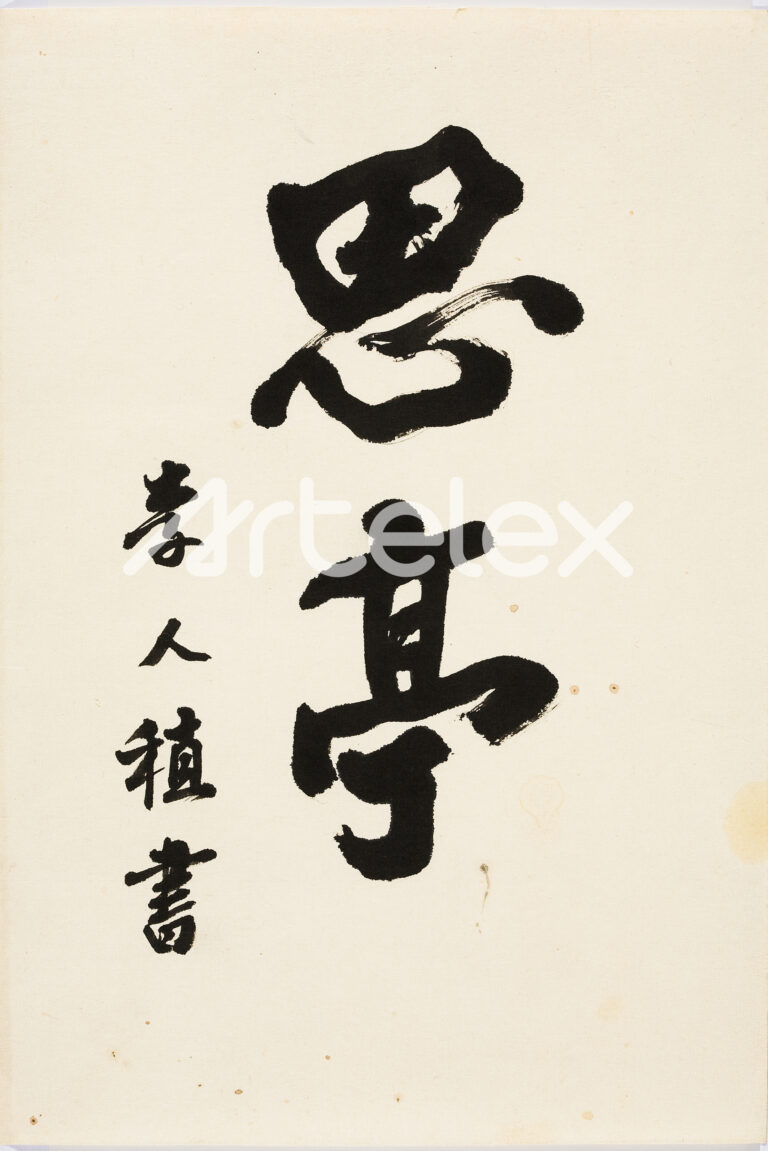 思亭
李人稙書
Artelex